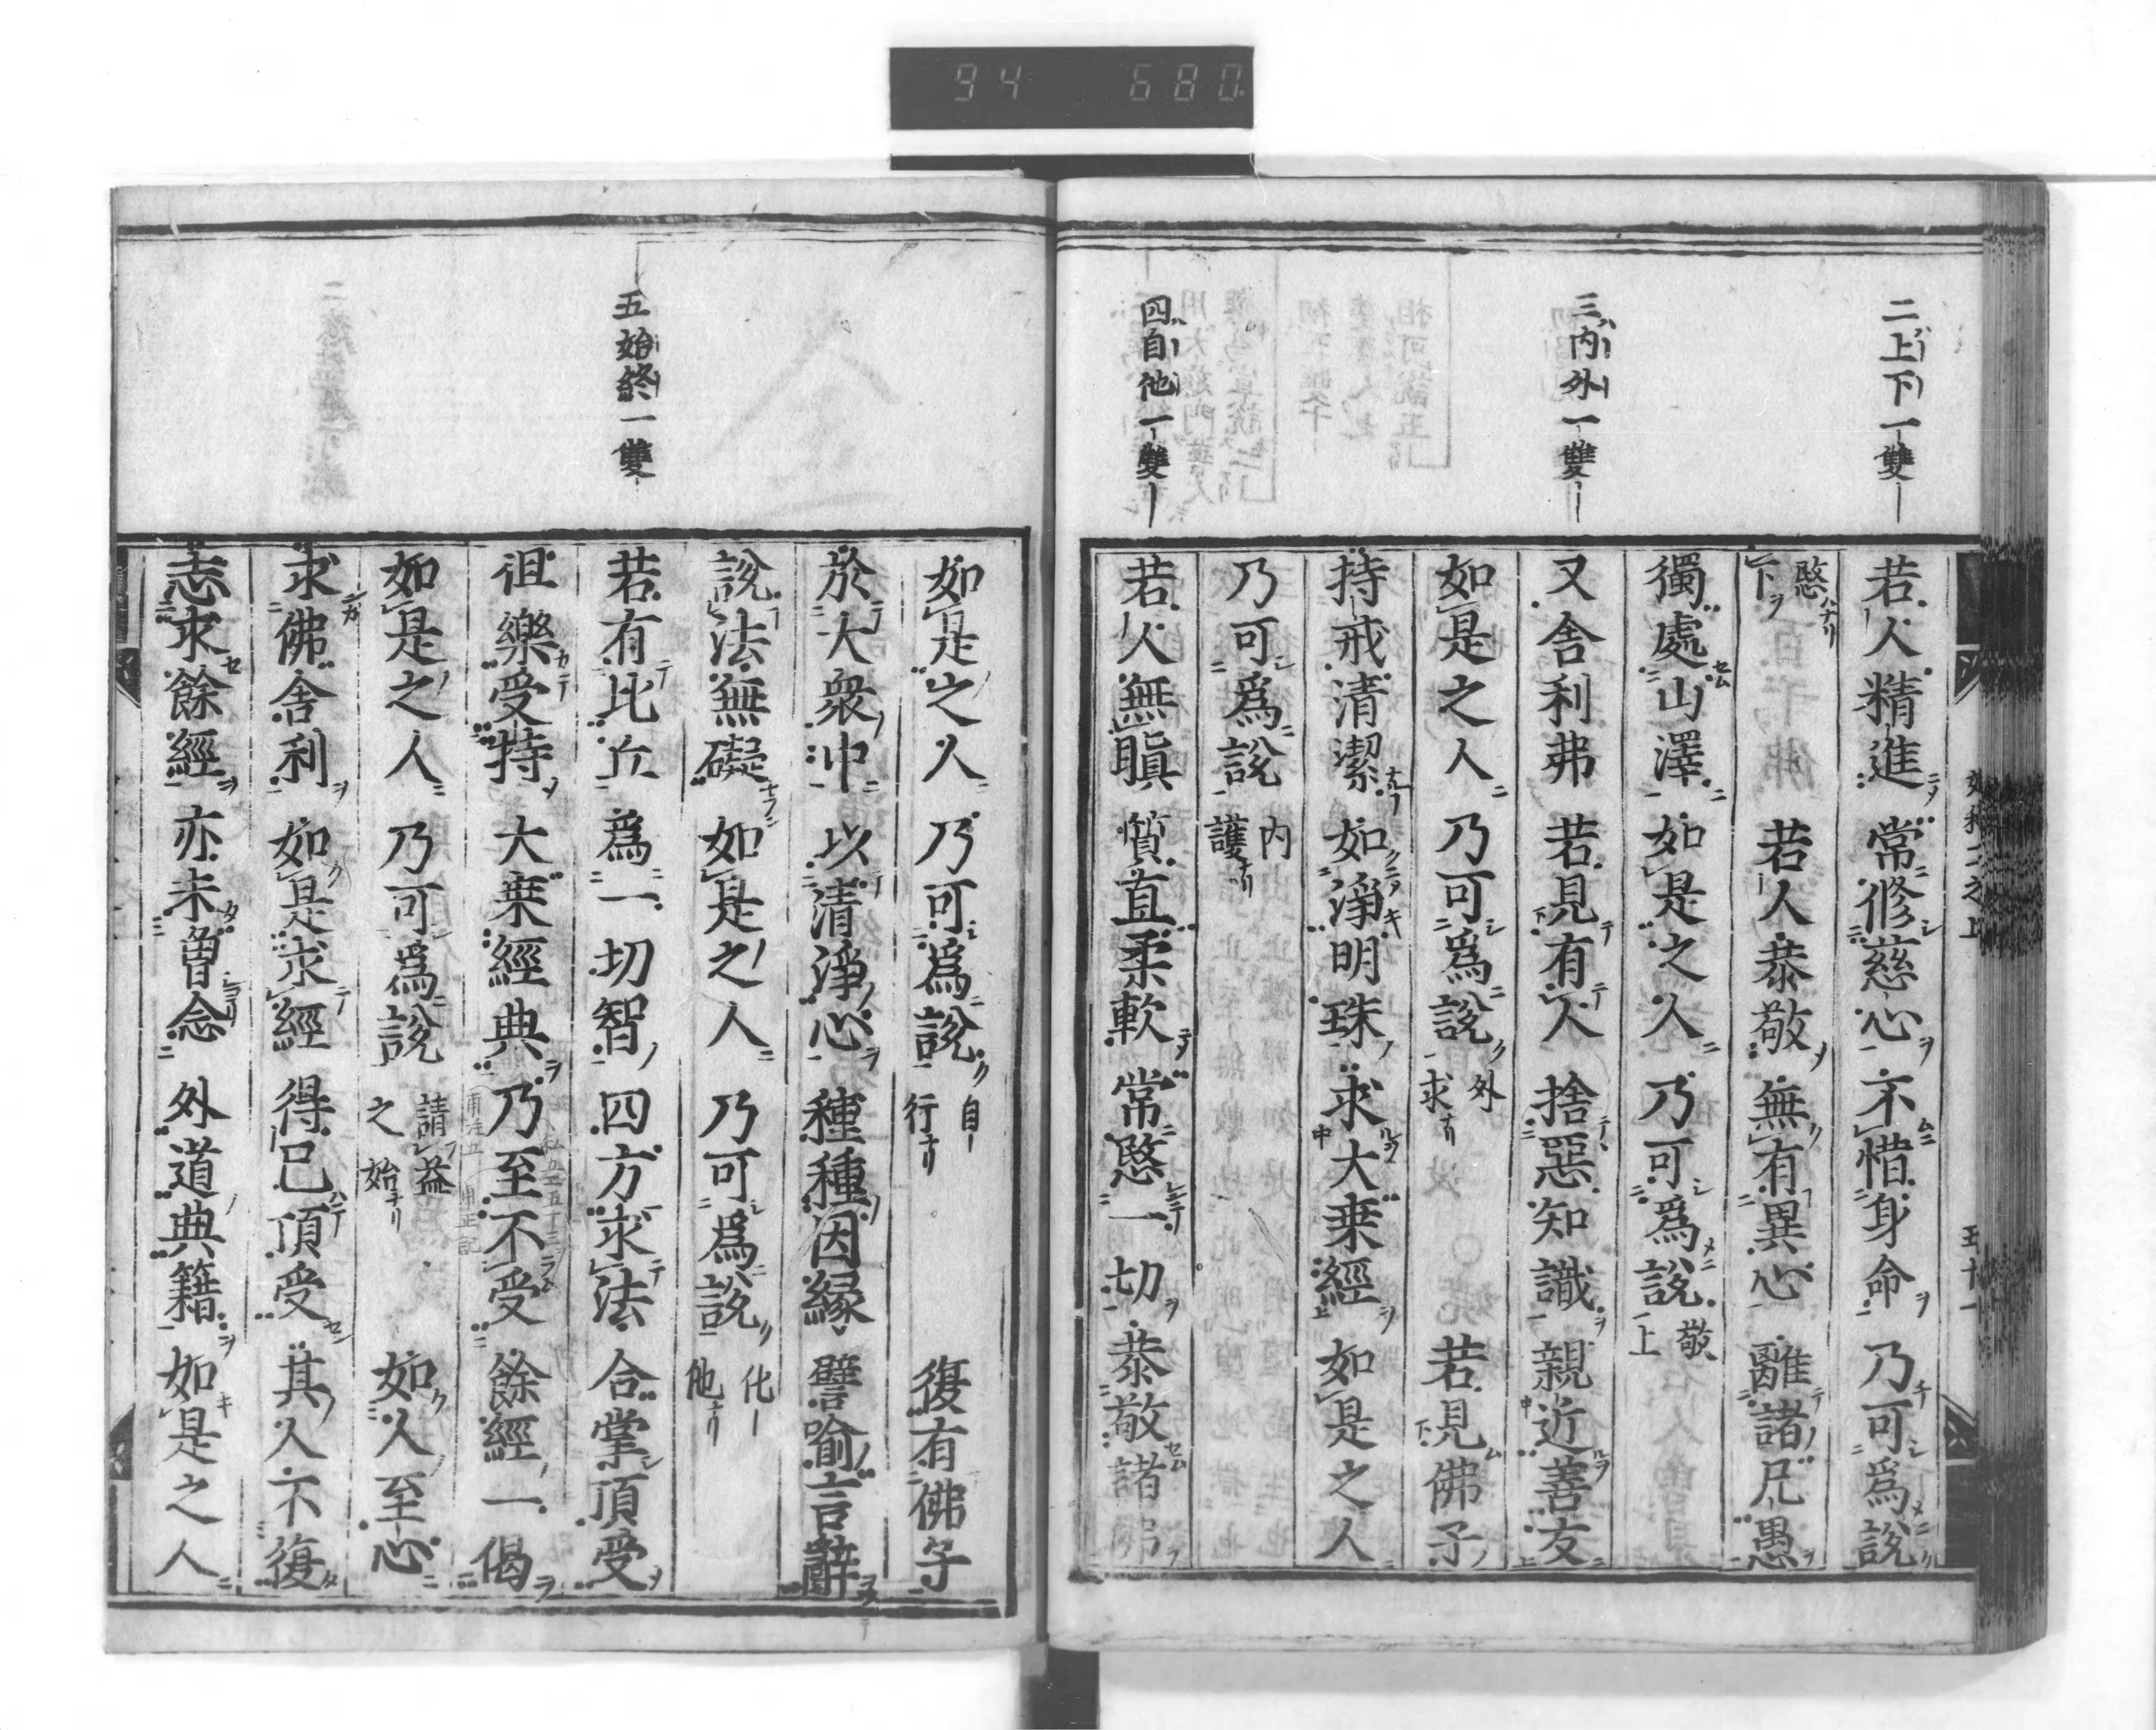 94 680
二上下一雙
三内外一雙
四自他一雙
若人精進常修慈心不惜身命乃可爲說
愍下ヲ若人恭敬無有異心離諸凡愚
獨處山澤如是之人乃可爲說敬上
又舎利弗若見有人捨惡知識親近善友
如是之人乃可爲說外求若見佛子
持戒清潔如淨明珠求大乗經如是之人
乃可爲說内護
若人無瞋質直柔軟常愍一切恭敬諸佛
五始終一雙
如是之人乃可爲說自行復有佛子
於大衆中以清淨心種種因縁譬喻言辭
說法無礙如是之人乃可爲說化他
若有比丘爲一切智四方求法合掌頂受
徂樂受持大乗經典乃至不受餘經一偈
如是之人乃可爲說請益之始如人至心
求佛舎利如是求經得已頂受其人不復
志求餘經亦未曽念外道典籍如是之人